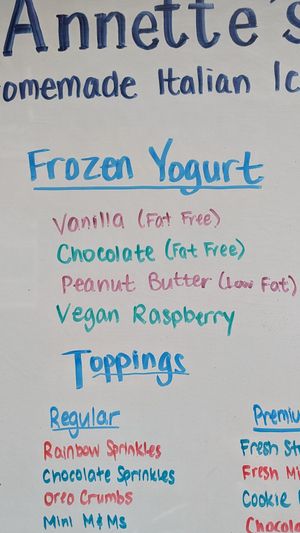 Annette's
omemade Italian Ic
Frozen Yogurt
Vanilla (Fat Free)
Chocolate (Fat Free)
Peanut Butter (Low Fat)
Vegan Raspberry
Toppings
Regular
Rainbow Sprinkles
Chocolate Sprinkles
Oreo Crumbs
Mini M&Ms
Premiu
Fresh St
Fresh Mi
Cookie
Chocola